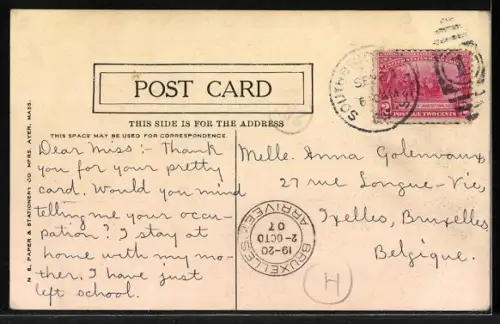 POST CARD
THIS SIDE IS FOR THE ADDRESS
THIS SPACE MAY BE USED FOR CORRESPONDENCE.
Dear Miss :- Thank
you for your pretty
card. Would you mind
telling me your occu-
pation? I stay at
home with my mo-
ther. I have just
left school.
Melle. Anna Golenvaux,
27 rue Longue-Vie,
Ixelles, Bruxelles,
Belgique.
N. E. PAPER & STATIONERY CO. MFRS. AYER, MASS.
POSTAGE TWO CENTS
2
BRUXELLES
19-20
2 OCTO
07
ARRIVEE
H